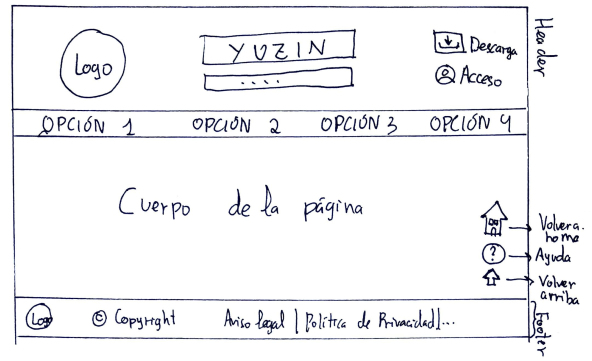 Header
Logo
YUZIN
....
Descarga
Acceso
OPCIÓN 1 OPCIÓN 2 OPCIÓN 3 OPCIÓN 4
Cuerpo de la página
Volver a home
Ayuda
Volver arriba
Logo © Copyright Aviso legal | Política de Privacidad | ...
Footer